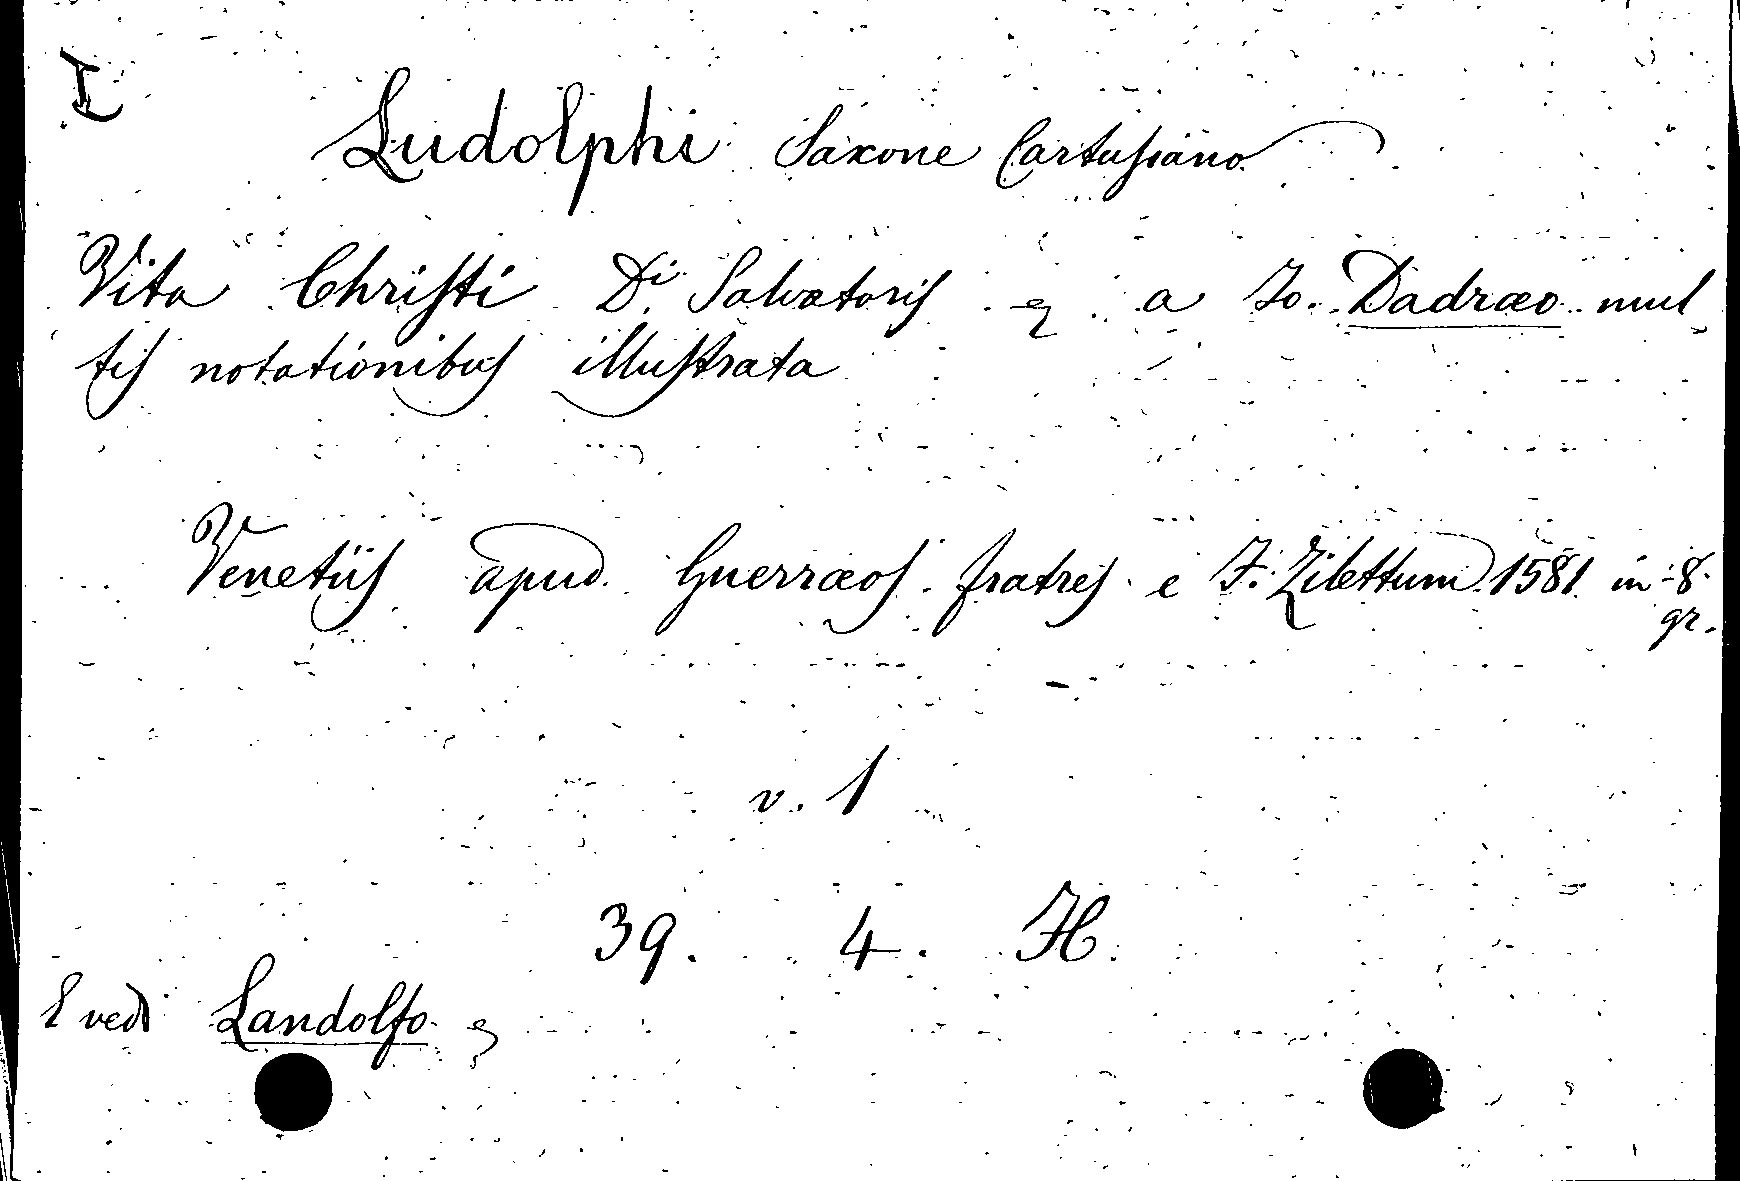 I
Ludolphi Saxone Cartusiano
Vita Christi Di Salvatoris a Jo. Dadræo mul
tis notationibus illustrata
Venetiis apud Guerræos fratres e F. Zilettum 1581 in-8
gr.
v. 1
39. 4. H.
E vedi Landolfo